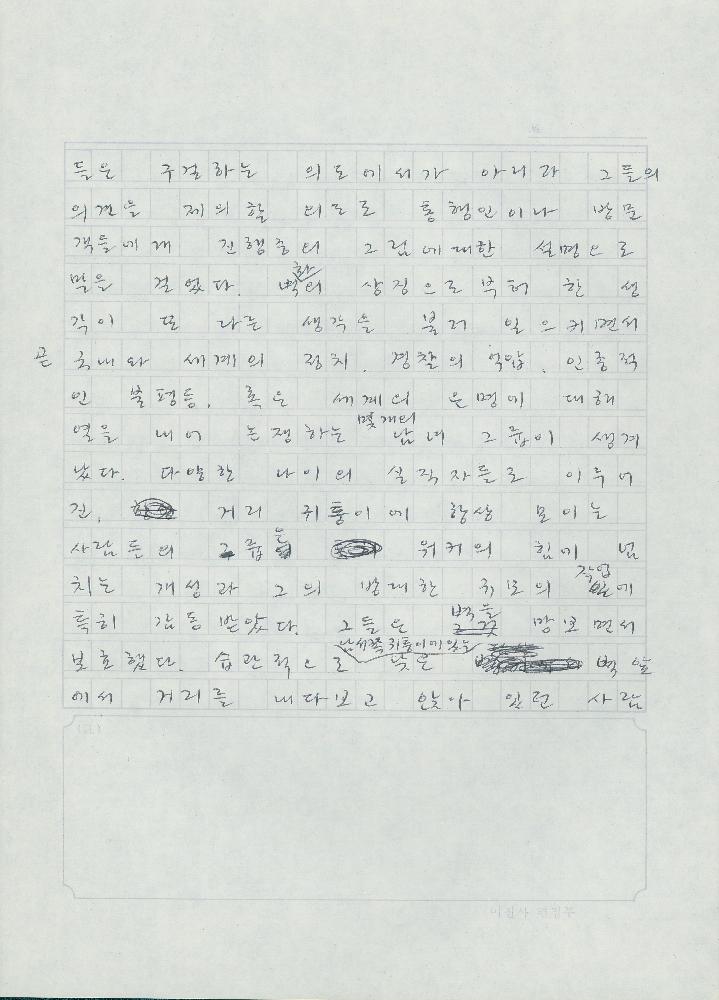 들은 구걸하는 의도에서가 아니라 그들의
의견을 제의할 의도로 통행인이나 방문
객들에게 진행중의 그림에 대한 설명으로
말을 걸었다. 벽화의 상징으로 부터 한 생
각이 또 다른 생각을 불러 일으키면서
곧 국내와 세계의 정치, 경찰의 억압, 인종적
인 불평등, 혹은 세계의 운명에 대해
열을 내어 논쟁하는 몇개의 남녀 그룹이 생겨
났다. 다양한 나이의 실직자들로 이루어
진, 거리 귀퉁이에 항상 모이는
사람들의 그룹들 워커의 힘에 넘
치는 개성과 그의 방대한 규모의 작업에
특히 감동 받았다. 그들은 벽을 망보면서
보호했다. 습관적으로 남서쪽 귀퉁이에 있는 낮은 벽 앞
에서 거리를 내다보고 앉아 있던 사람